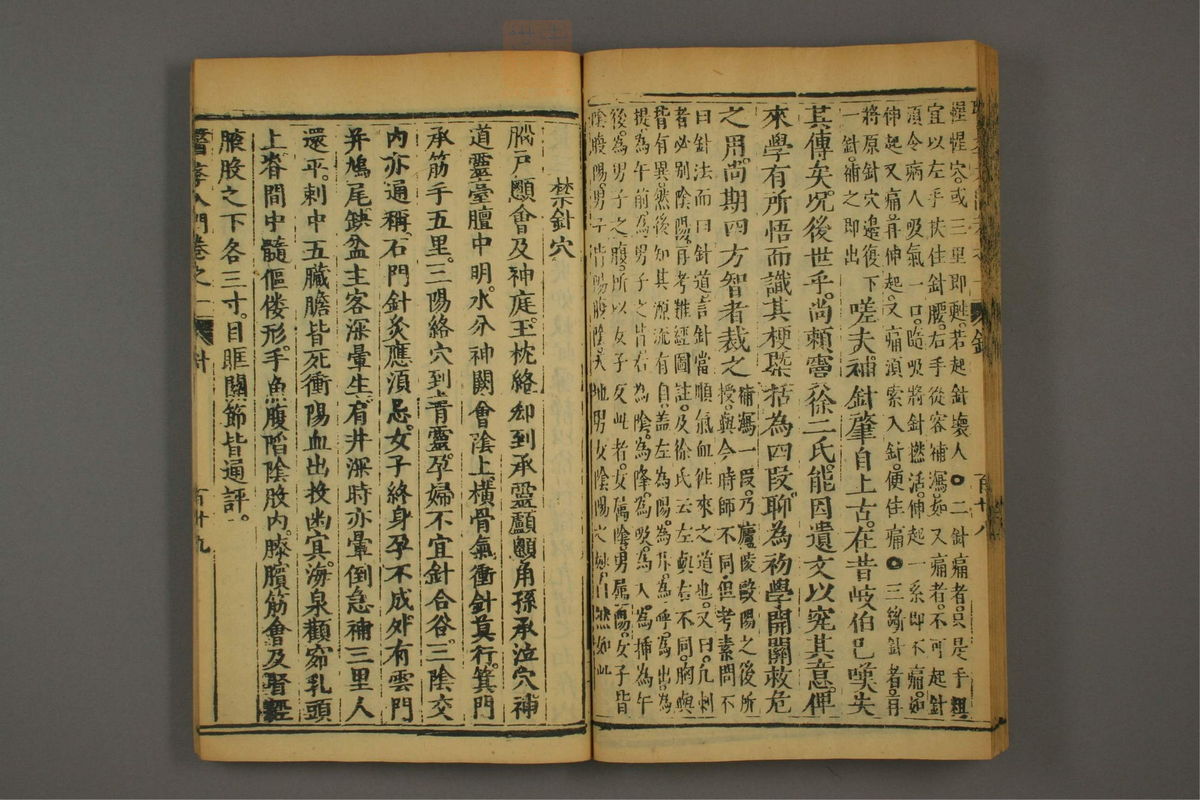 惺惺穴或三里即甦。若起針壞人。○二針痛者。只是手粗。
宜以左手扶住針腰。右手從容補瀉。如又痛者。不可起針。
須令病人吸氣一口。隨吸將針撚活。伸起一糸即不痛。如
伸起又痛。再伸起。又痛。須索入針。便住痛。○三斷針者。再
將原針穴邊復下
一針。補之即出
嗟夫。補針肇自上古。在昔岐伯已嘆失
其傳矣。况後世乎。尚賴竇徐二氏。能因遺文以究其意。俾
來學有所悟而識其梗槩。括為四段。聊為初學。開關救危
之用。尚期四方智者裁之。
補瀉一段。乃廬陵歐陽之後所
授。與今時師不同。但考素問不
曰針法而曰針道。言針當順氣血徃來之道也。又曰。凢刺
者必別陰陽。再考難經圖註。及徐氏云左與右不同。胸與
背有異。然後知其源流有自。盖左為陽。為升。為呼。為出。為
提。為午前。為男子之背。右為陰。為降。為吸。為入。為挿。為午
後。為男子之腹。所以女子反此者。女屬陰。男屬陽。女子背
陰腹陽。男子背陽腹陰。天地男女陰陽之妙。自然如此
禁針穴
腦戶顖會及神庭。玉枕絡却到承靈。顱顖角孫承泣穴。神
道靈臺膻中明。水分神闕會陰上。橫骨氣衝針莫行。箕門
承筋手五里。三陽絡穴到青靈。孕婦不宜針合谷。三陰交
內亦通稱。石門針灸應須忌。女子終身孕不成。外有雲門
并鳩尾。缺盆主客深暈生。肩井深時亦暈倒。急補三里人
還平。刺中五臟膽皆死。衝陽血出投幽冥。海泉顴窌乳頭
上。脊間中髓傴僂形。手魚腹陷陰股內。膝臏筋會及腎經。
腋股之下各三寸。目眶關節皆通評。
醫學入門卷之一
針
百十九